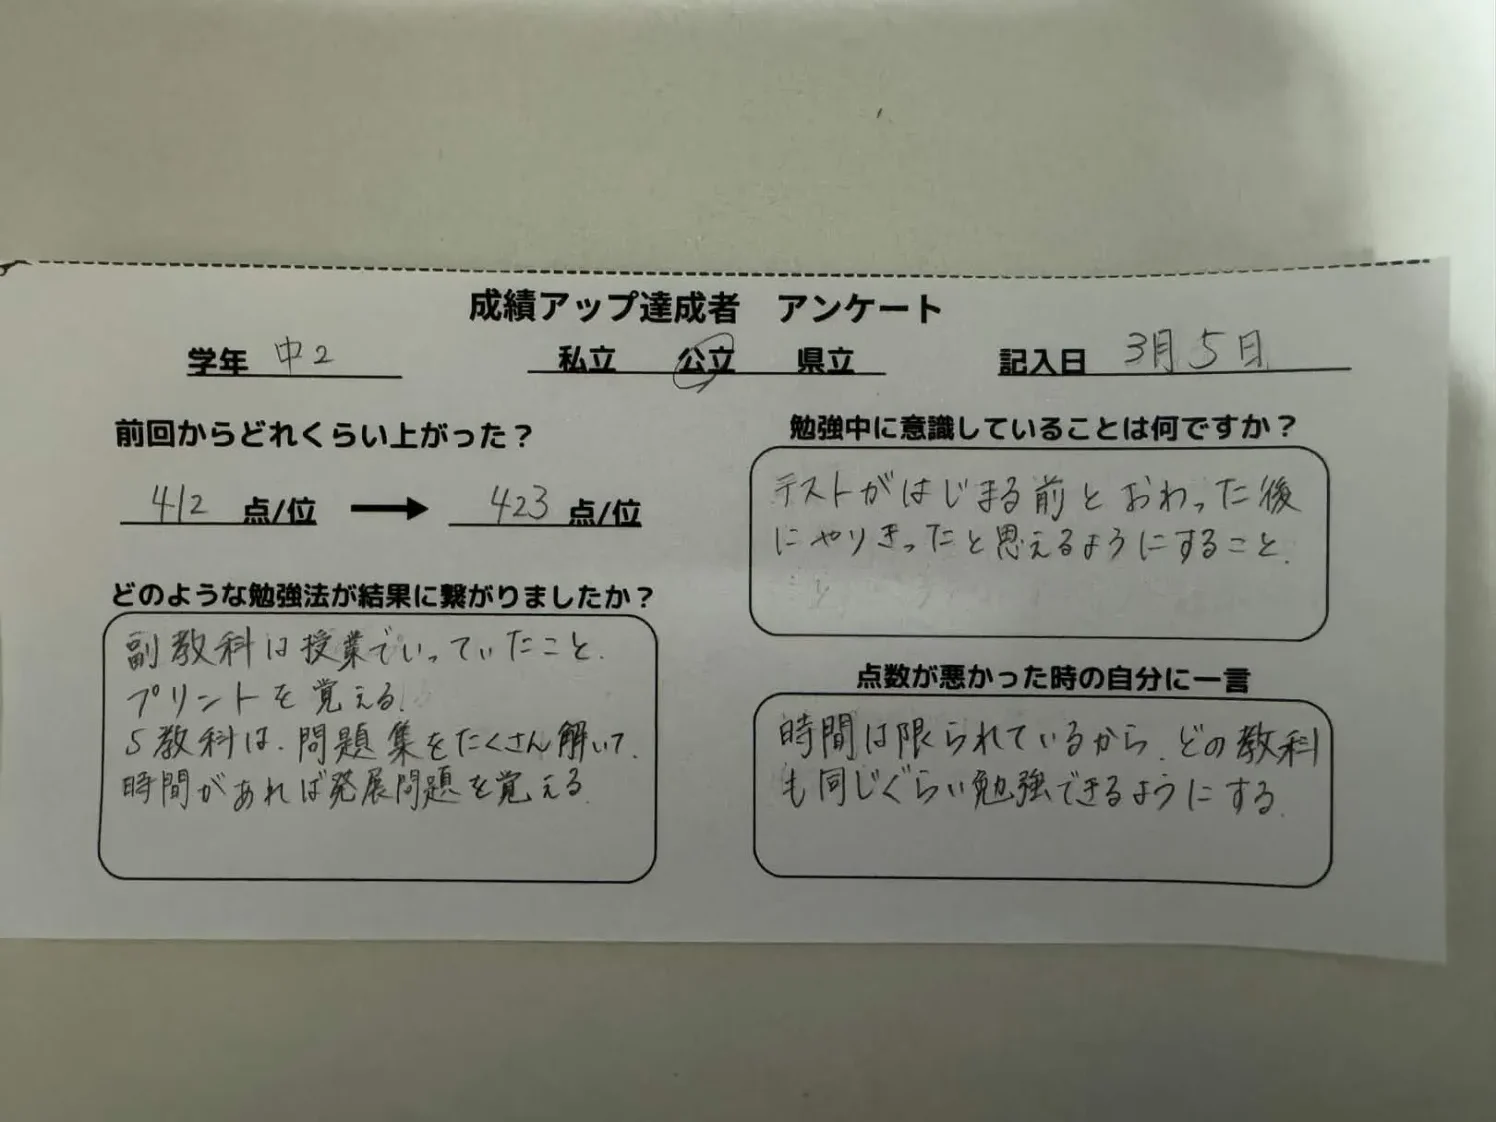 成績アップ達成者 アンケート
学年 中2 私立 公立 県立 記入日 3月5日
前回からどれくらい上がった？
412 点/位 → 423 点/位
どのような勉強法が結果に繋がりましたか？
副教科は授業でいっていたこと.
プリントを覚える.
5教科は.問題集をたくさん解いて.
時間があれば発展問題を覚える.
勉強中に意識していることは何ですか？
テストがはじまる前とおわった後
にやりきったと思えるようにすること.
点数が悪かった時の自分に一言
時間は限られているから.どの教科
も同じぐらい勉強できるようにする.